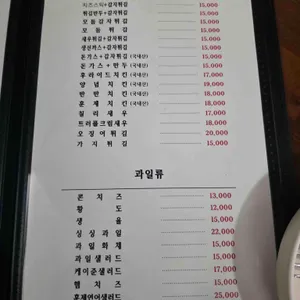 치즈스틱+감자튀김 15,000
튀김만두+감자튀김 15,000
모듬감자튀김 15,000
모듬튀김 15,000
새우튀김+감자튀김 15,000
생선까스+감자튀김 15,000
돈가스+감자튀김(국내산) 15,000
돈가스+만두(국내산) 15,000
후라이드치킨(국내산) 17,000
양념치킨(국내산) 18,000
반반치킨(국내산) 18,000
훈제치킨(국내산) 18,000
칠리새우 17,000
트러플크림새우 18,000
오징어튀김 20,000
가지튀김 15,000
과일류
콘치즈 13,000
황도 12,000
생율 15,000
싱싱과일 22,000
과일화채 15,000
과일샐러드 15,000
케이준샐러드 17,000
햄치즈 15,000
훈제연어샐러드 25,000